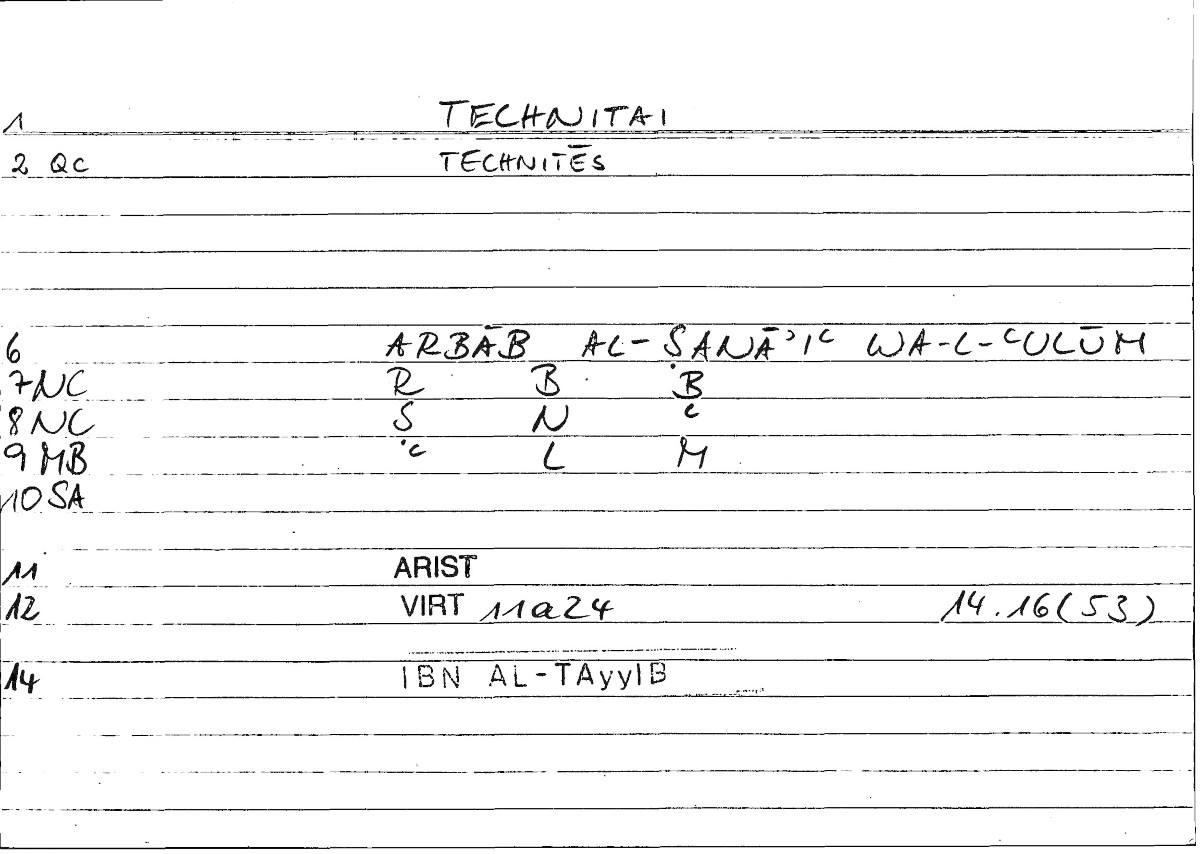 1 TECHNITAI
2 QC TECHNITĒS
6 ARBĀB AL-ṢANĀʾIʿ WA-L-ʿULŪM
7 NC R B B
8 NC Ṣ N ʿ
9 MB ʿ L M
10 SA
11 ARIST
12 VIRT 11a24 14.16(53)
14 IBN AL-TAyyIB